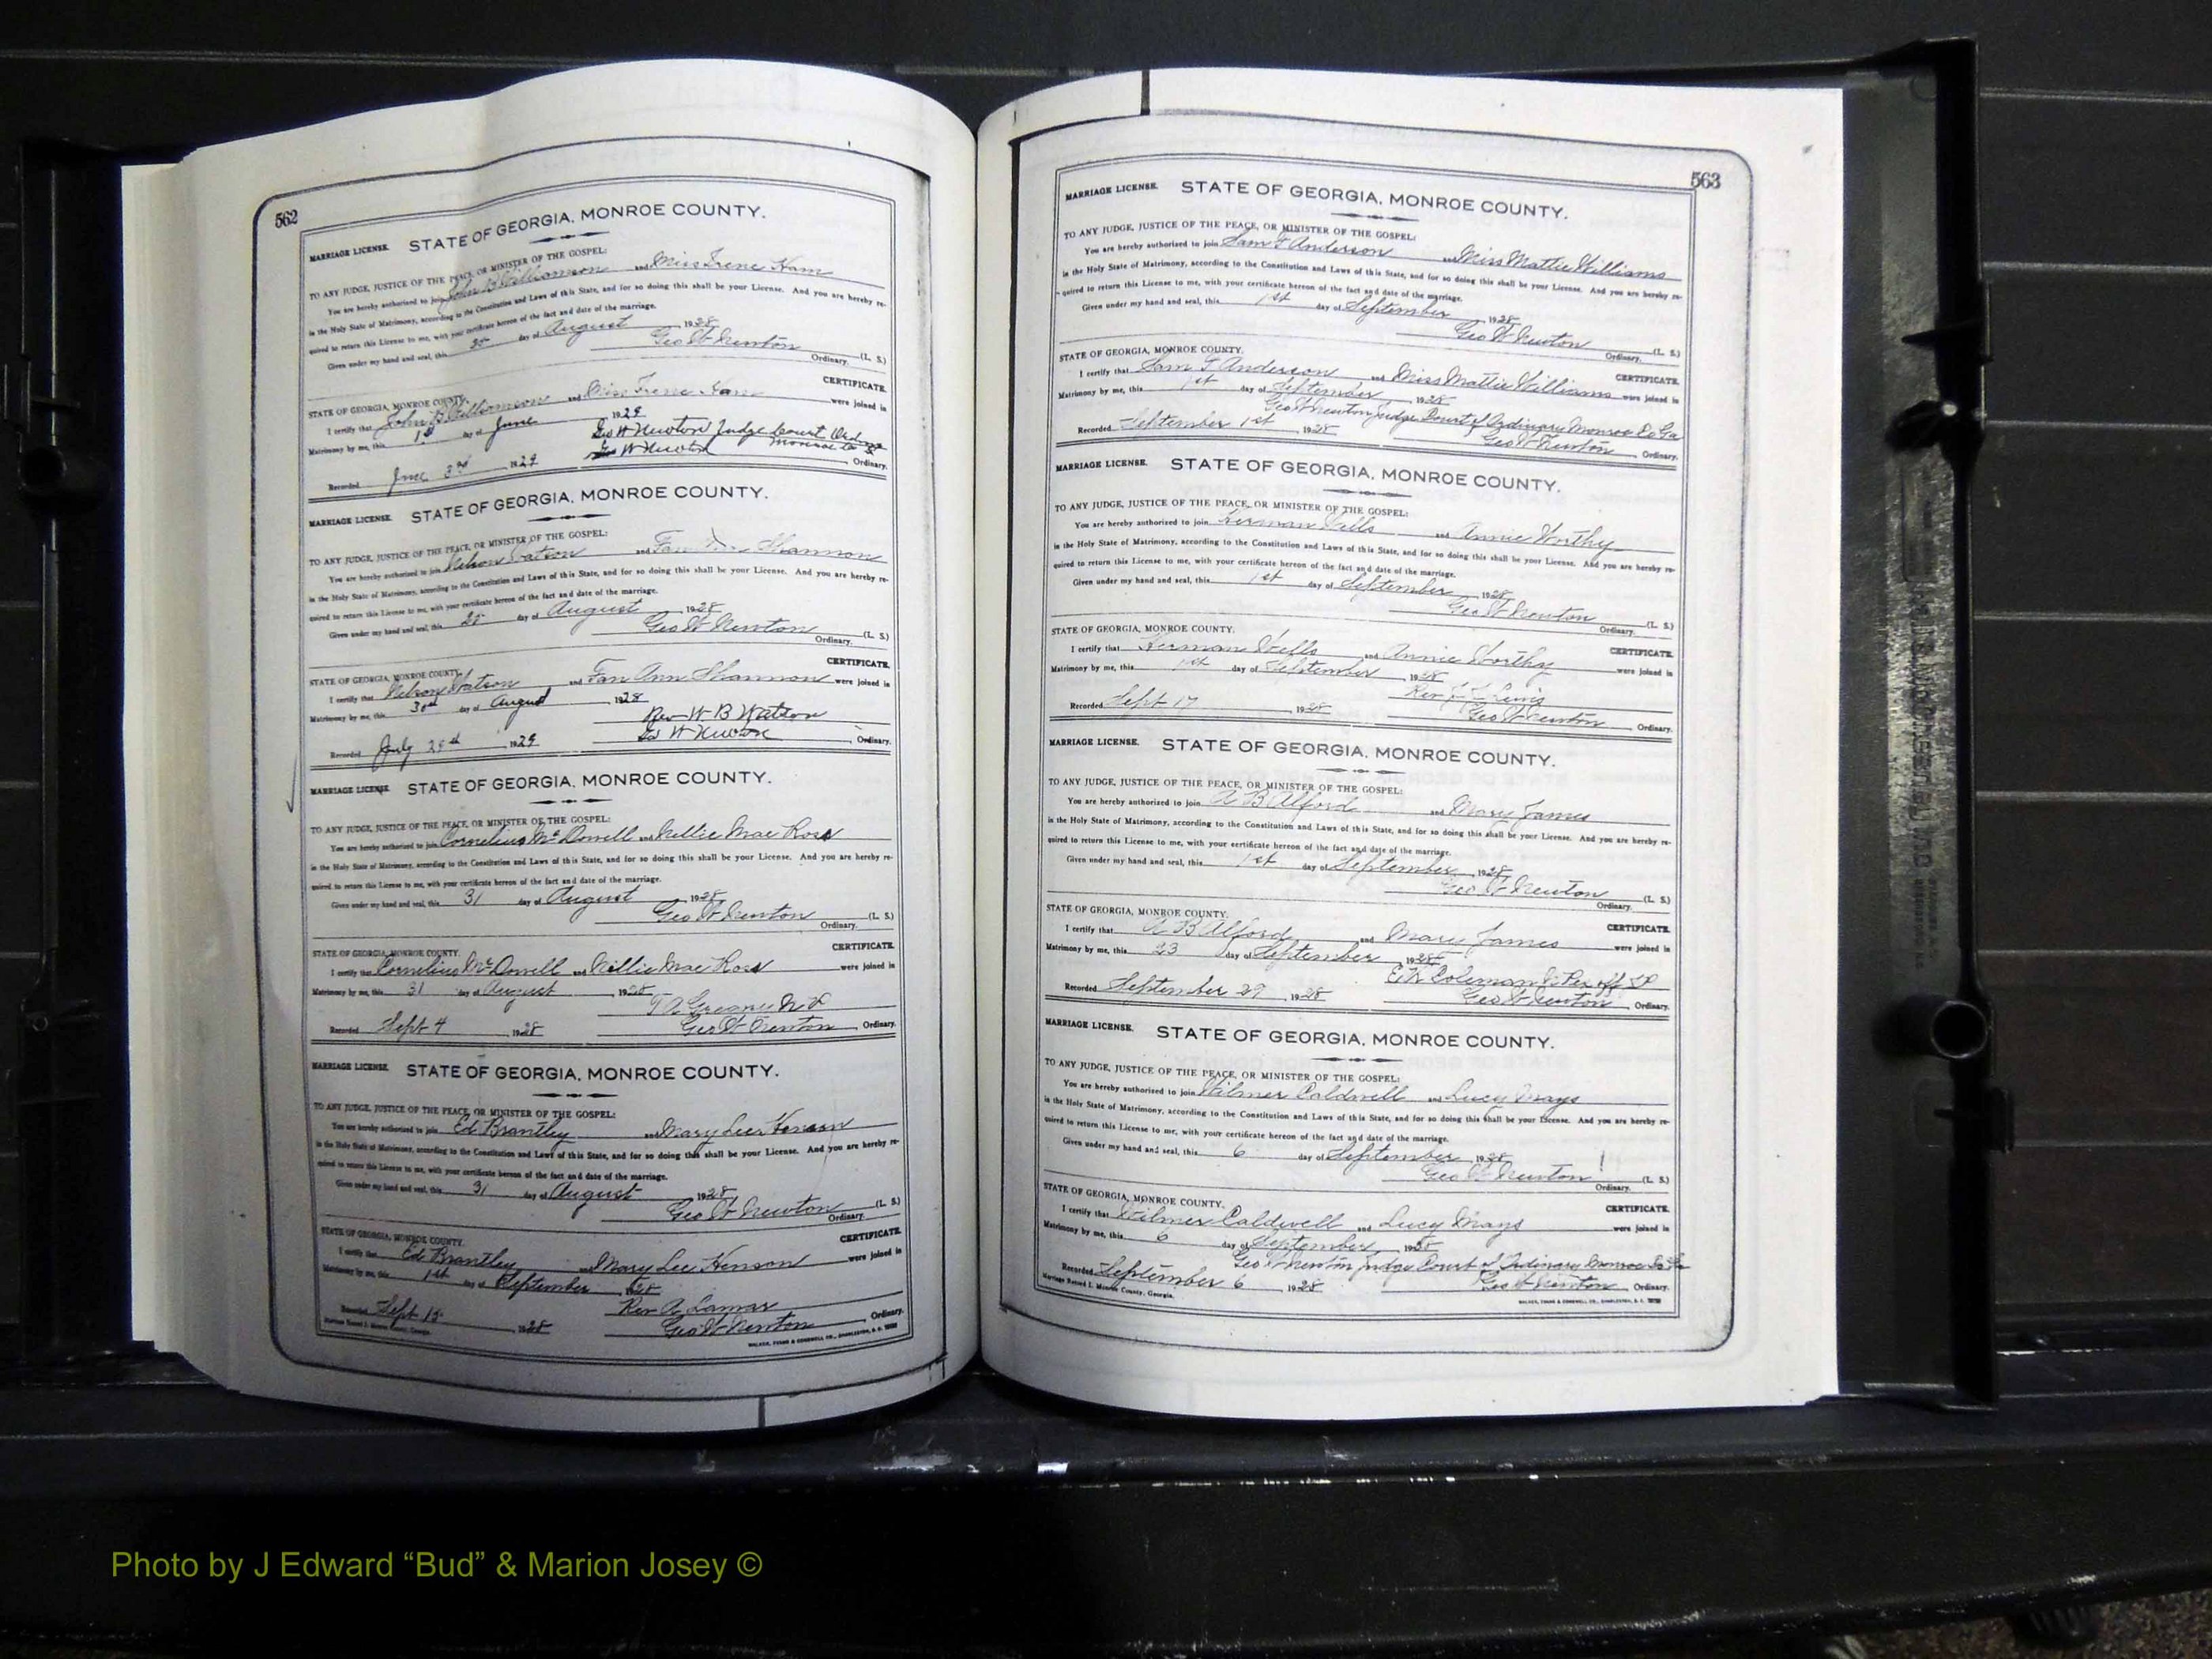 562
MARRIAGE LICENSE. STATE OF GEORGIA, MONROE COUNTY.
TO ANY JUDGE, JUSTICE OF THE PEACE, OR MINISTER OF THE GOSPEL:
You are hereby authorized to join John B Williamson and Miss Irene Ham
in the Holy State of Matrimony, according to the Constitution and Laws of this State, and for so doing this shall be your License. And you are hereby re-
quired to return this License to me, with your certificate hereon of the fact and date of the marriage.
Given under my hand and seal, this day of August 1928
Geo W Newton (L. S.)
Ordinary.
STATE OF GEORGIA, MONROE COUNTY. CERTIFICATE.
I certify that John B Williamson and Miss Irene Ham were joined in
Matrimony by me, this 1st day of June 1929
Geo W Newton Judge Court Ordinary
Monroe Co
Recorded June 3rd 1929 Geo W Newton Ordinary.
MARRIAGE LICENSE. STATE OF GEORGIA, MONROE COUNTY.
TO ANY JUDGE, JUSTICE OF THE PEACE, OR MINISTER OF THE GOSPEL:
You are hereby authorized to join Nelson Watson and Fan Ann Shannon
in the Holy State of Matrimony, according to the Constitution and Laws of this State, and for so doing this shall be your License. And you are hereby re-
quired to return this License to me, with your certificate hereon of the fact and date of the marriage.
Given under my hand and seal, this day of August 1928
Geo W Newton (L. S.)
Ordinary.
STATE OF GEORGIA, MONROE COUNTY. CERTIFICATE.
I certify that Nelson Watson and Fan Ann Shannon were joined in
Matrimony by me, this 30th day of August 1928
Rev W B Watson
Recorded July 29th 1929 Geo W Newton Ordinary.
MARRIAGE LICENSE. STATE OF GEORGIA, MONROE COUNTY.
TO ANY JUDGE, JUSTICE OF THE PEACE, OR MINISTER OF THE GOSPEL:
You are hereby authorized to join Cornelius McDowell and Nillie Mae Ross
in the Holy State of Matrimony, according to the Constitution and Laws of this State, and for so doing this shall be your License. And you are hereby re-
quired to return this License to me, with your certificate hereon of the fact and date of the marriage.
Given under my hand and seal, this 31 day of August 1928
Geo W Newton (L. S.)
Ordinary.
STATE OF GEORGIA, MONROE COUNTY. CERTIFICATE.
I certify that Cornelius McDowell and Nillie Mae Ross were joined in
Matrimony by me, this 31 day of August 1928
Recorded Sept 4 1928 Geo W Newton Ordinary.
MARRIAGE LICENSE. STATE OF GEORGIA, MONROE COUNTY.
TO ANY JUDGE, JUSTICE OF THE PEACE, OR MINISTER OF THE GOSPEL:
You are hereby authorized to join Ed Brantley and Mary Lee Henson
in the Holy State of Matrimony, according to the Constitution and Laws of this State, and for so doing this shall be your License. And you are hereby re-
quired to return this License to me, with your certificate hereon of the fact and date of the marriage.
Given under my hand and seal, this 31 day of August 1928
Geo W Newton (L. S.)
Ordinary.
STATE OF GEORGIA, MONROE COUNTY. CERTIFICATE.
I certify that Ed Brantley and Mary Lee Henson were joined in
Matrimony by me, this 1st day of September 1928
Rev A Lamar
Recorded Sept 1928 Geo W Newton Ordinary.
Marriage Record I. Monroe County, Georgia. WALKER, EVANS & COGSWELL CO., CHARLESTON, S. C.
563
MARRIAGE LICENSE. STATE OF GEORGIA, MONROE COUNTY.
TO ANY JUDGE, JUSTICE OF THE PEACE, OR MINISTER OF THE GOSPEL:
You are hereby authorized to join Sam F Anderson and Miss Mattie Williams
in the Holy State of Matrimony, according to the Constitution and Laws of this State, and for so doing this shall be your License. And you are hereby re-
quired to return this License to me, with your certificate hereon of the fact and date of the marriage.
Given under my hand and seal, this 1st day of September 1928
Geo W Newton (L. S.)
Ordinary.
STATE OF GEORGIA, MONROE COUNTY. CERTIFICATE.
I certify that Sam F Anderson and Miss Mattie Williams were joined in
Matrimony by me, this 1st day of September 1928
Geo W Newton Judge Court of Ordinary Monroe Co Ga
Recorded September 1st 1928 Geo W Newton Ordinary.
MARRIAGE LICENSE. STATE OF GEORGIA, MONROE COUNTY.
TO ANY JUDGE, JUSTICE OF THE PEACE, OR MINISTER OF THE GOSPEL:
You are hereby authorized to join Herman Wells and Annie Worthy
in the Holy State of Matrimony, according to the Constitution and Laws of this State, and for so doing this shall be your License. And you are hereby re-
quired to return this License to me, with your certificate hereon of the fact and date of the marriage.
Given under my hand and seal, this 1st day of September 1928
Geo W Newton (L. S.)
Ordinary.
STATE OF GEORGIA, MONROE COUNTY. CERTIFICATE.
I certify that Herman Wells and Annie Worthy were joined in
Matrimony by me, this 1st day of September 1928
Rev Lewis
Recorded Sept 17 1928 Geo W Newton Ordinary.
MARRIAGE LICENSE. STATE OF GEORGIA, MONROE COUNTY.
TO ANY JUDGE, JUSTICE OF THE PEACE, OR MINISTER OF THE GOSPEL:
You are hereby authorized to join A B Alford and Mary James
in the Holy State of Matrimony, according to the Constitution and Laws of this State, and for so doing this shall be your License. And you are hereby re-
quired to return this License to me, with your certificate hereon of the fact and date of the marriage.
Given under my hand and seal, this 1st day of September 1928
Geo W Newton (L. S.)
Ordinary.
STATE OF GEORGIA, MONROE COUNTY. CERTIFICATE.
I certify that A B Alford and Mary James were joined in
Matrimony by me, this 23 day of September 1928
Coleman
Recorded September 29 1928 Geo W Newton Ordinary.
MARRIAGE LICENSE. STATE OF GEORGIA, MONROE COUNTY.
TO ANY JUDGE, JUSTICE OF THE PEACE, OR MINISTER OF THE GOSPEL:
You are hereby authorized to join Wilmer Caldwell and Lucy Mays
in the Holy State of Matrimony, according to the Constitution and Laws of this State, and for so doing this shall be your License. And you are hereby re-
quired to return this License to me, with your certificate hereon of the fact and date of the marriage.
Given under my hand and seal, this 6 day of September 1928
Geo W Newton (L. S.)
Ordinary.
STATE OF GEORGIA, MONROE COUNTY. CERTIFICATE.
I certify that Wilmer Caldwell and Lucy Mays were joined in
Matrimony by me, this 6 day of September 1928
Geo W Newton Judge Court of Ordinary Monroe Co Ga
Recorded September 6 1928 Geo W Newton Ordinary.
Marriage Record I. Monroe County, Georgia. WALKER, EVANS & COGSWELL CO., CHARLESTON, S. C.
Photo by J Edward “Bud” & Marion Josey ©